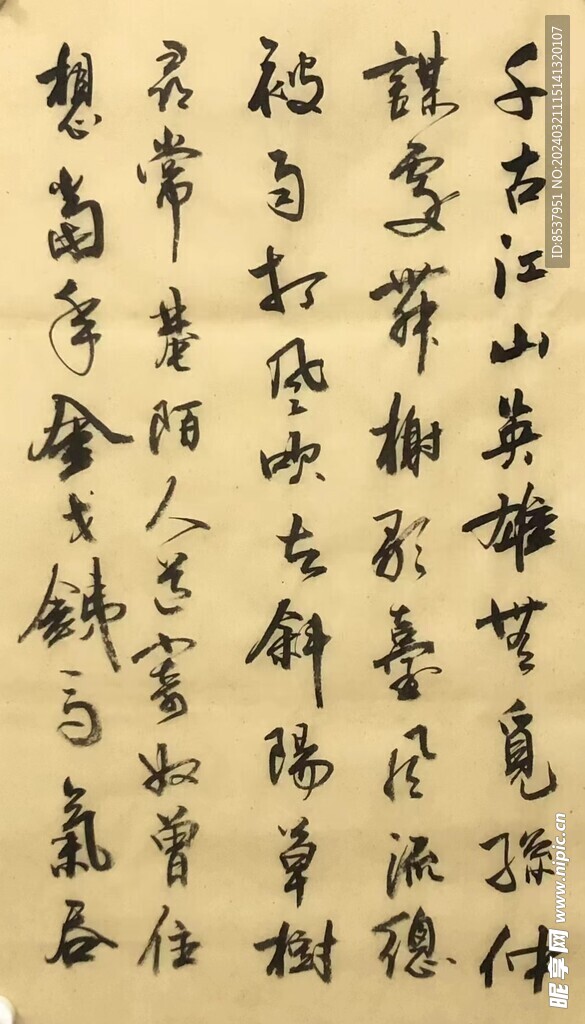 千古江山英雄無覓孫仲
謀處舞榭歌臺風流總
被雨打風吹去斜陽草樹
尋常巷陌人道寄奴曾住
想當年金戈鐵馬氣吞
ID:8537951 NO:20240321115141320107
昵享网 www.nipic.cn